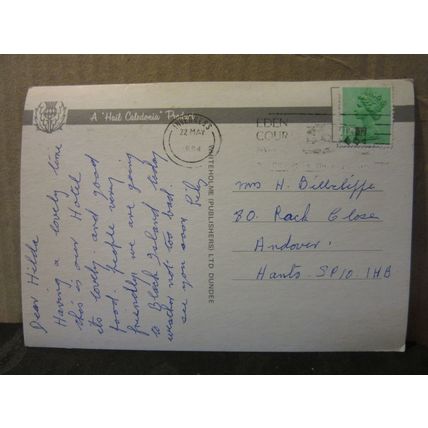 A "Hail Caledonia" Product
INVERNESS
22 MAY
EDEN
COUR
WHITEHOLME (PUBLISHERS) LTD DUNDEE
Dear Hilda
Having a lovely time
this is our Hotel
its lovely and good
food people very
friendly we are going
to Black Island today
weather not too bad.
see you soon
Mrs H. Billcliffe
80. Rack Close
Andover.
Hants. SP10. 1HB